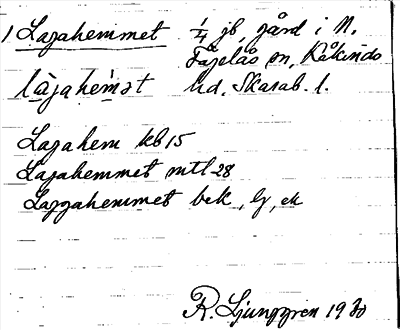 1 Lagahemmet 1/4 gb, gård i N.
Fågelås sn, Kåkinds
hd, Skarab. l.
làgahèmət
Lagahem kb 15
Lagahemmet mtl-28
Laggahemmet bek, Lj, ek
R. Ljunggren 1930